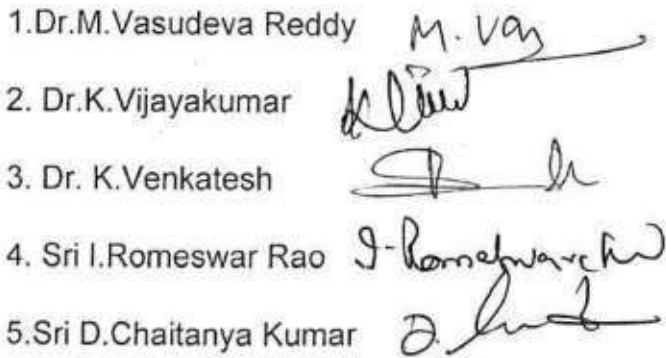 1.Dr.M.Vasudeva Reddy M. Vas
2. Dr.K.Vijayakumar
3. Dr. K.Venkatesh
4. Sri I.Romeswar Rao I-Rameshwar
5.Sri D.Chaitanya Kumar D.